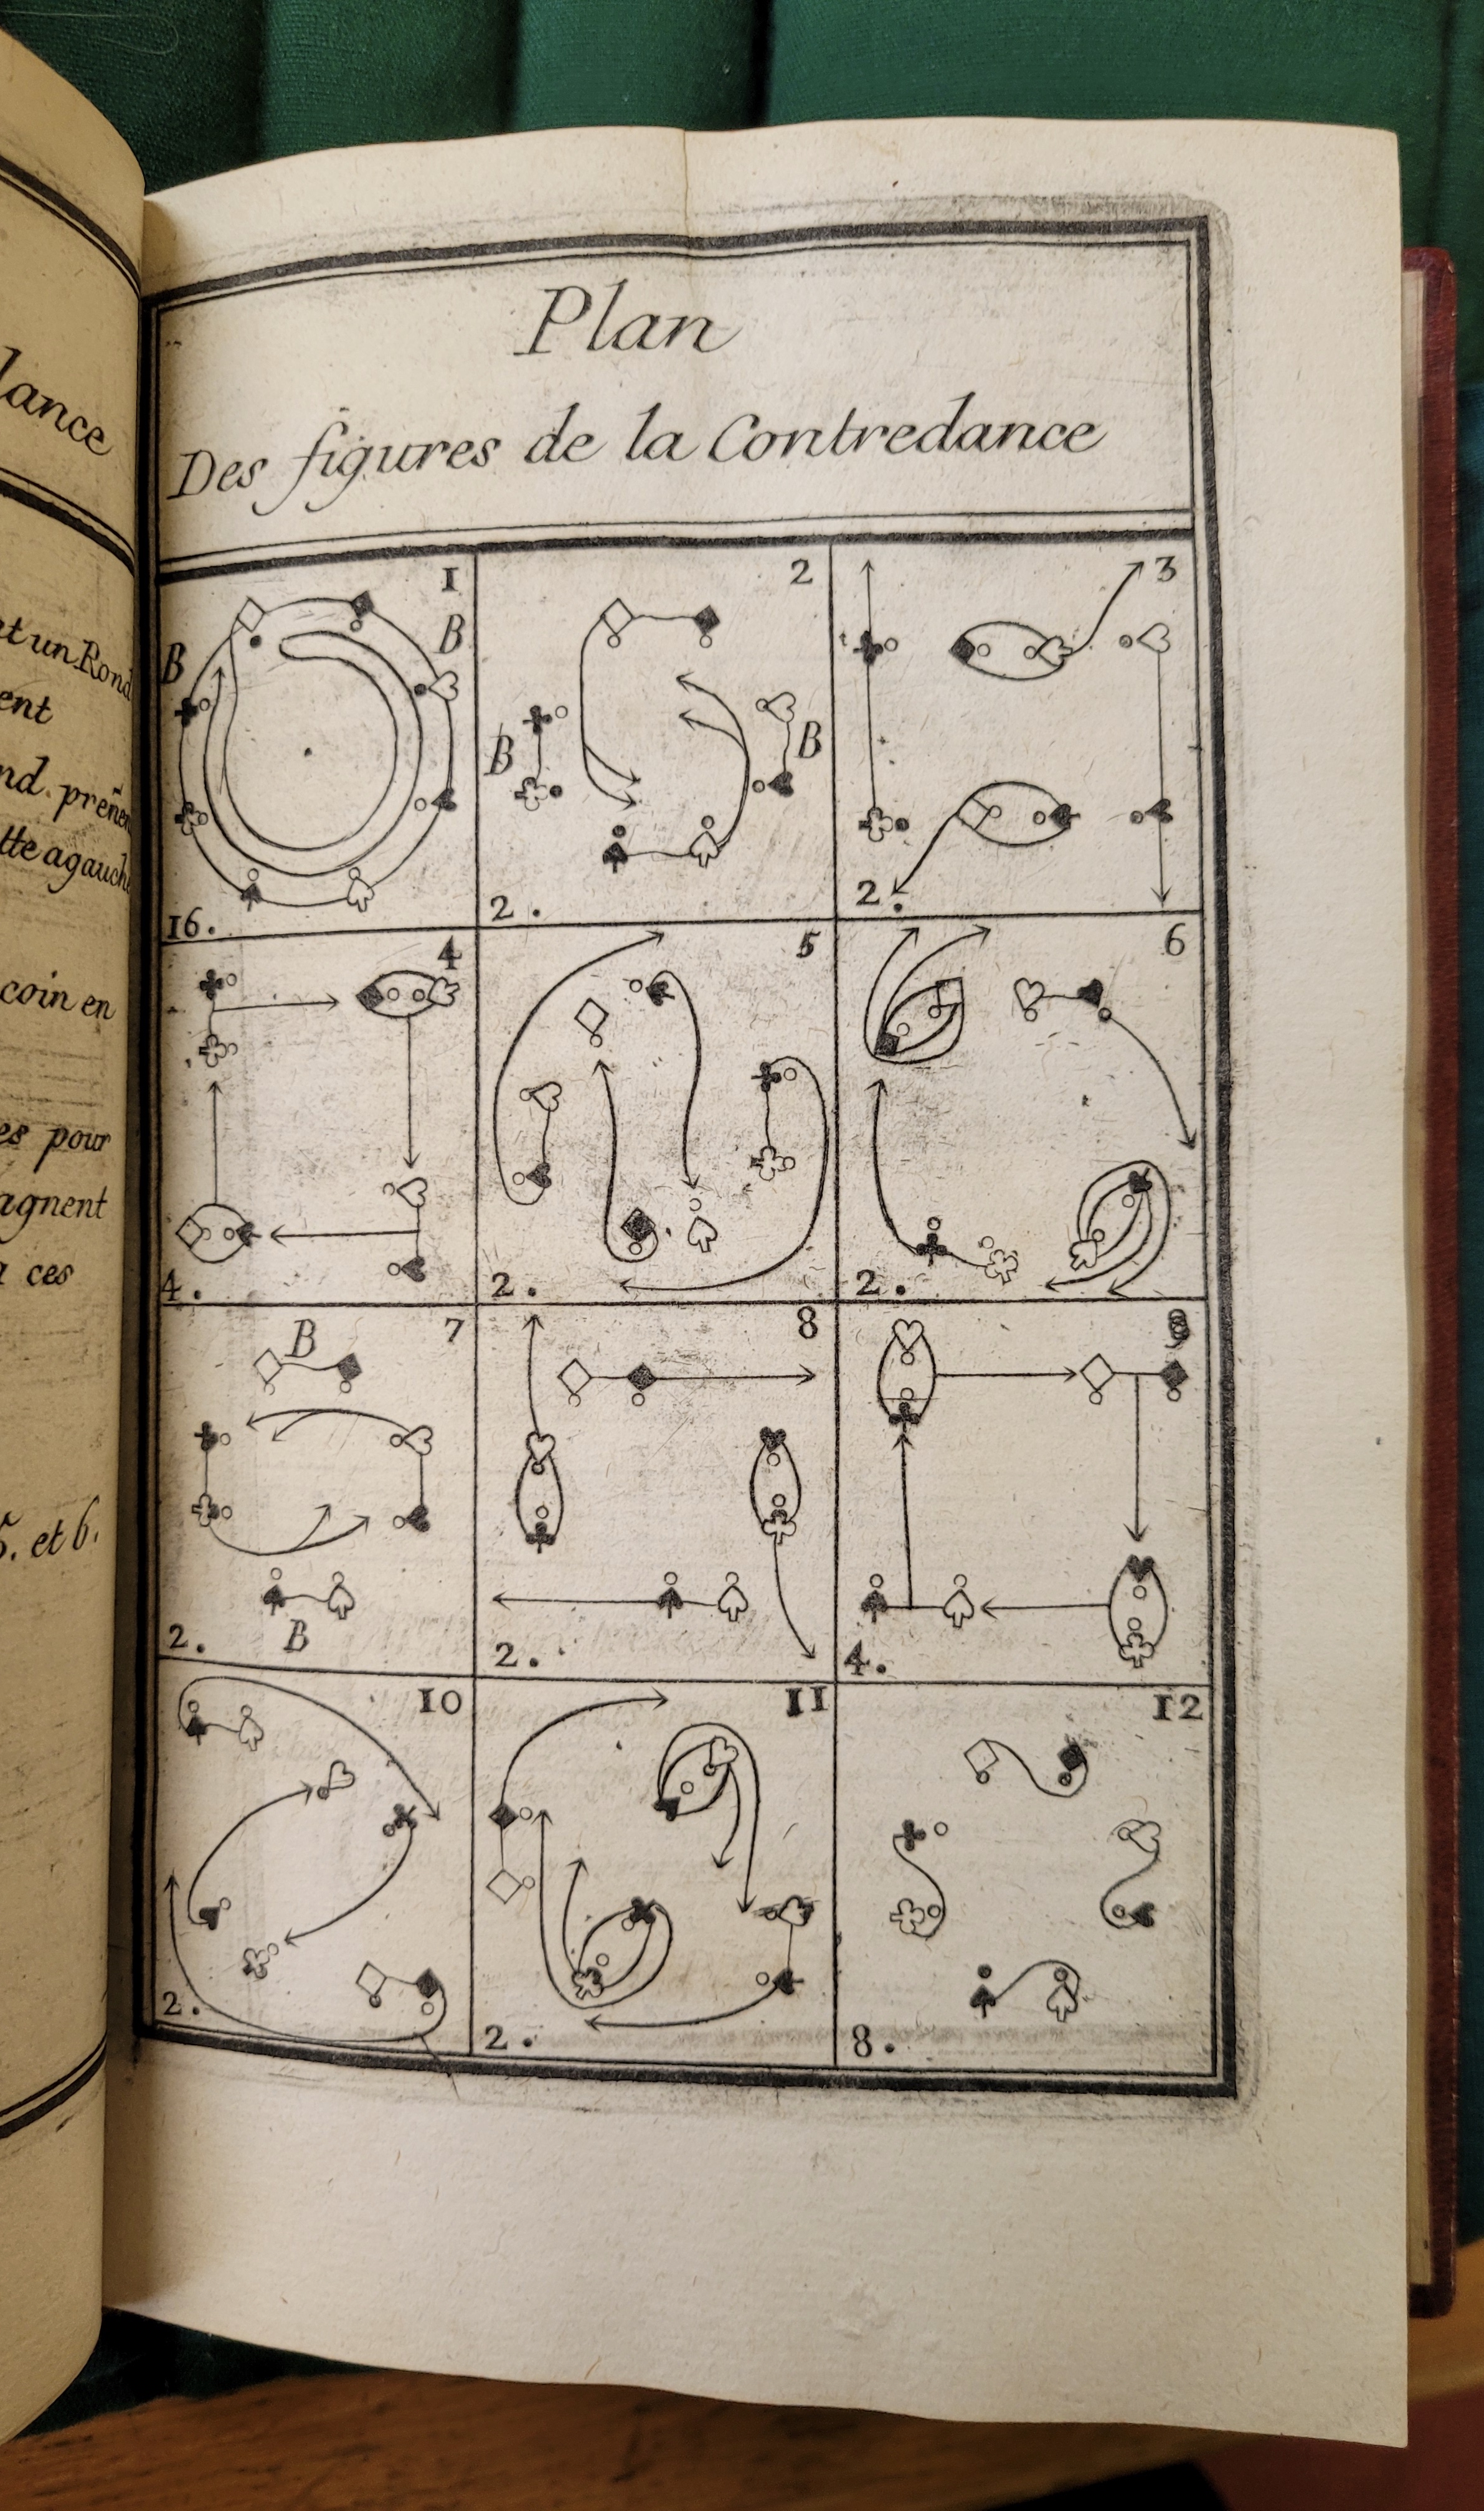 lance
et un Rond
ent
nd. preñen
tte agauche
coin en
es pour
agnent
a ces
5. et 6.
Plan
Des figures de la Contredance
1
B
B
16.
2
B
B
2.
3
2.
4
4.
5
2.
6
2.
7
B
2.
B
8
2.
9
4.
10
2.
11
2.
12
8.